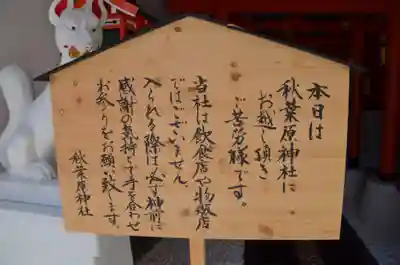 本日は
秋葉原神社に
お越し頂き
ご苦労様です。
当社は飲食店や物販店
ではございません。
入られる際は必ず神前に
感謝の気持ちで手を合わせ
お参りをお願い致します。
秋葉原神社